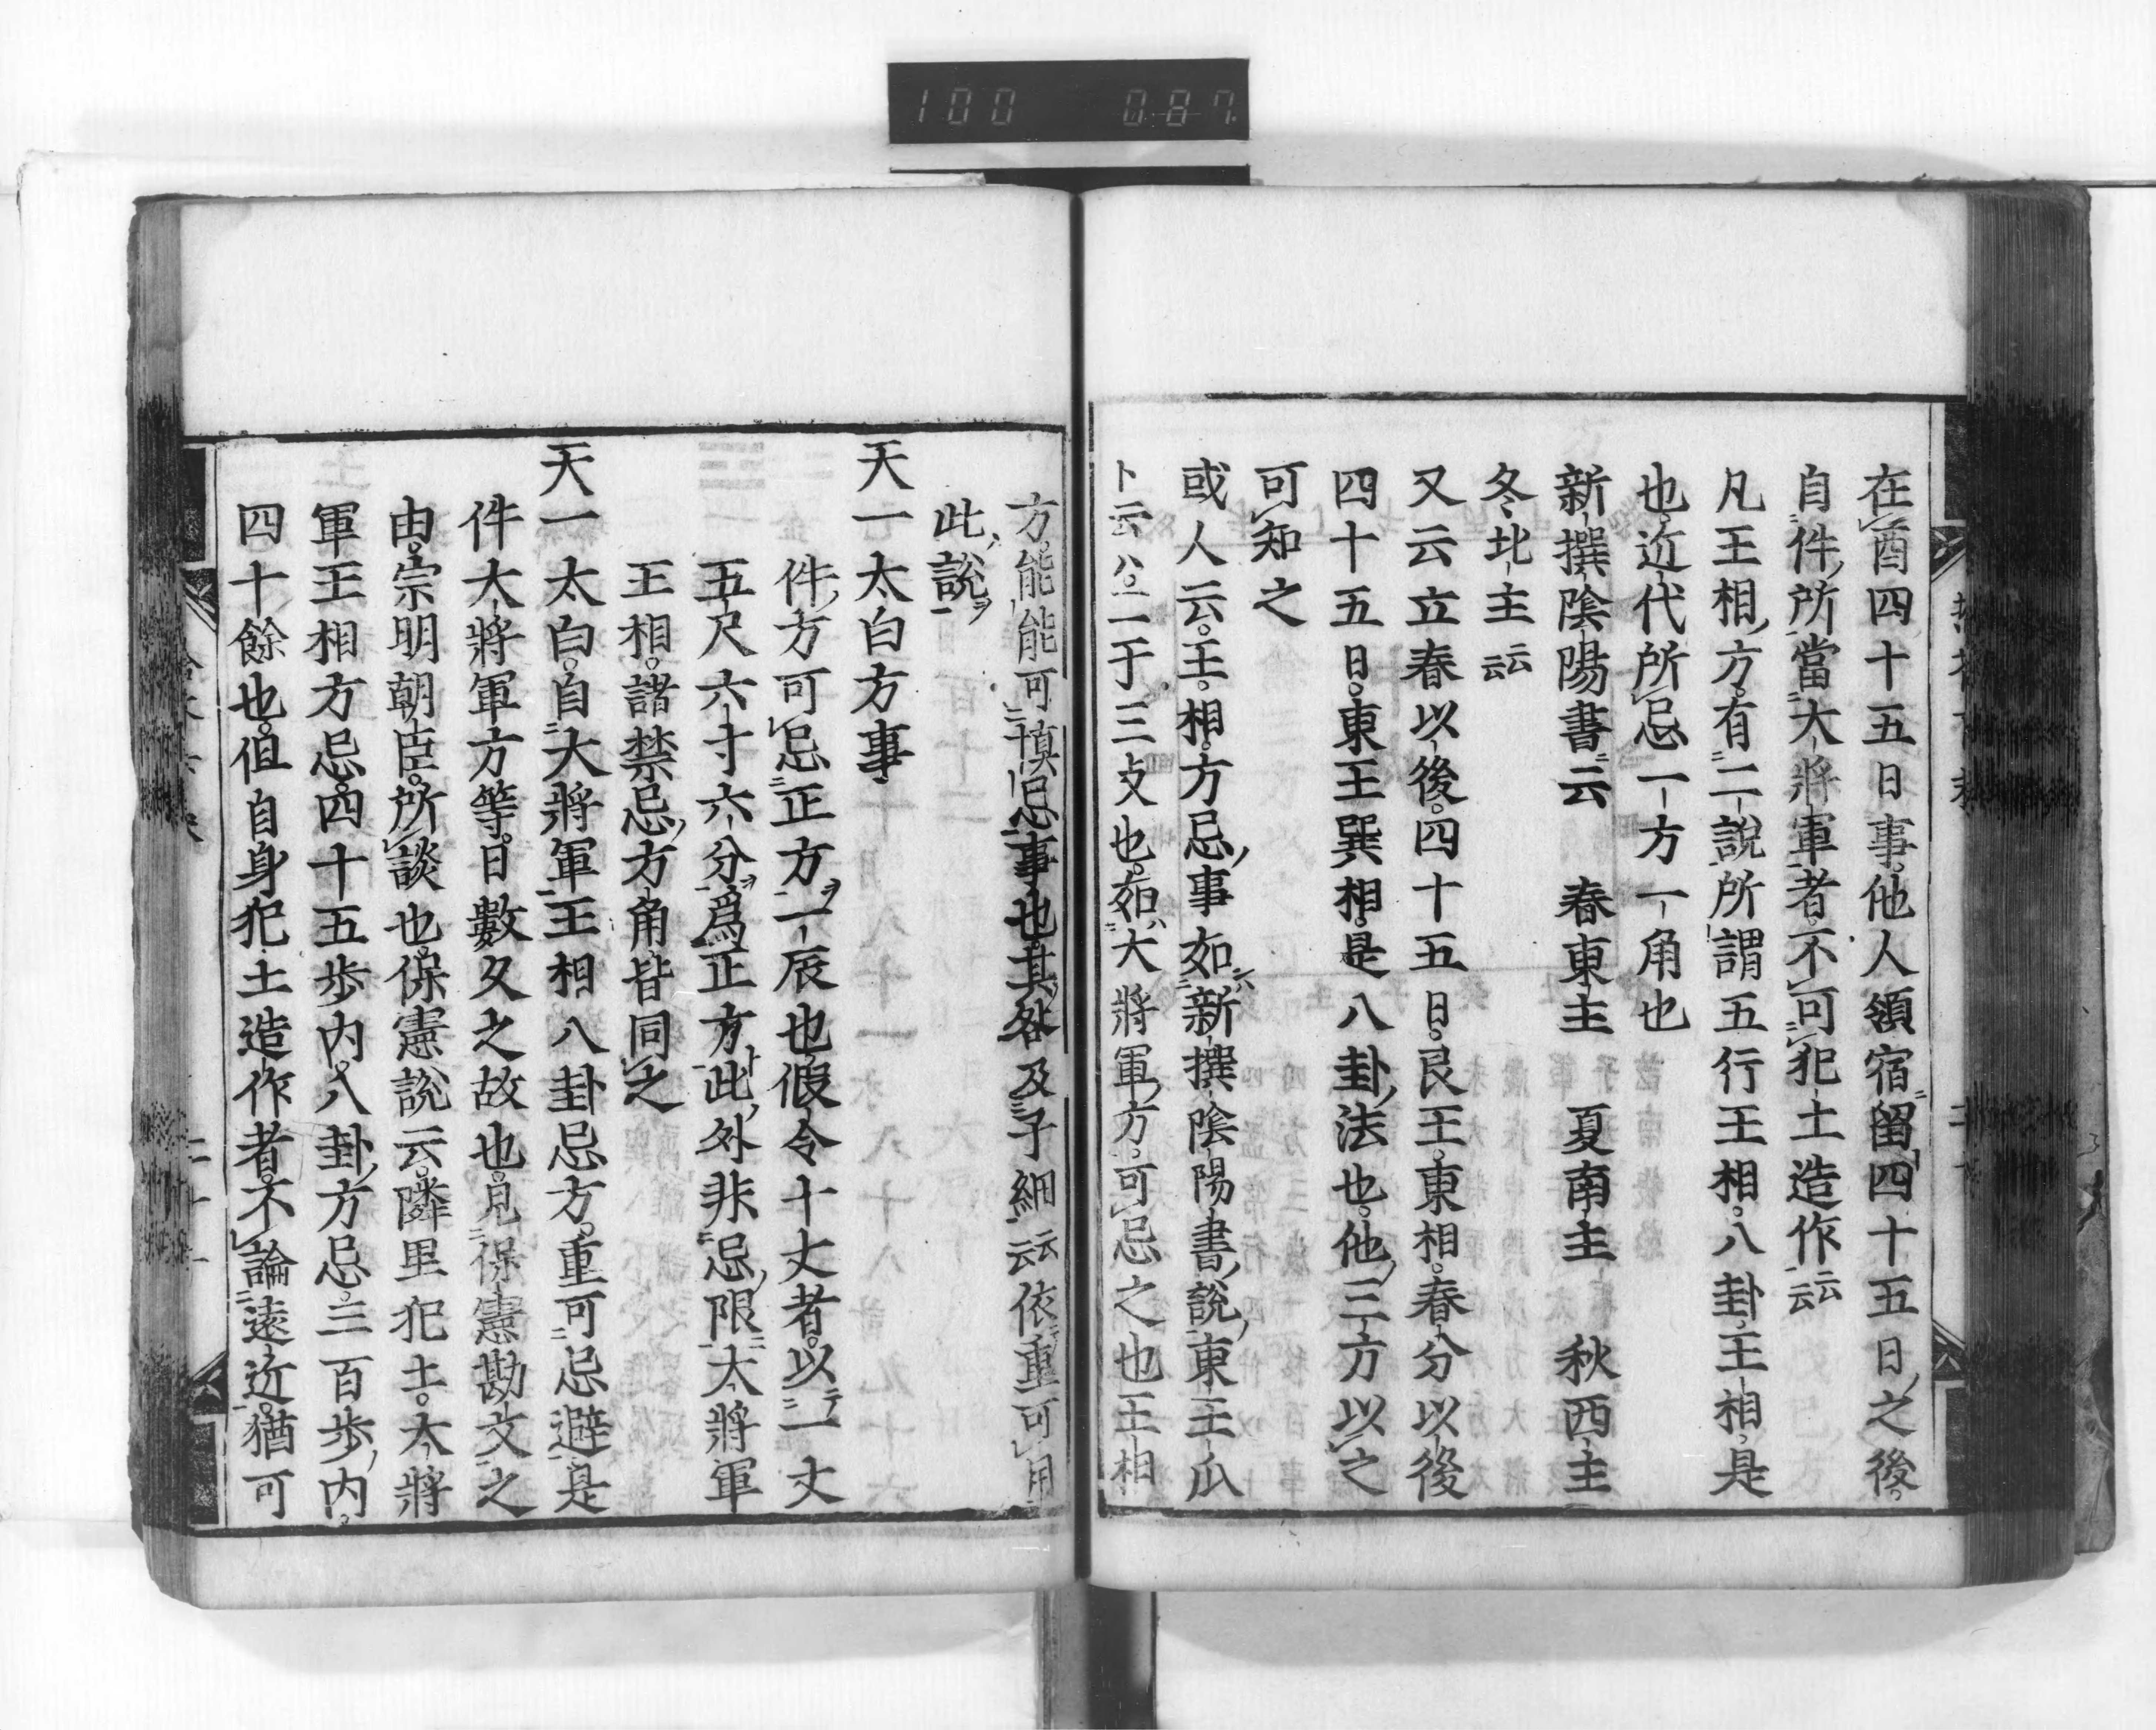 在酉四十五日事他人領宿留四十五日之後
自件所當大將軍者不可犯土造作云云
凡王相方有二說所謂五行王相八卦王相是
也近代所忌一方一角也
新撰陰陽書云　春東主　夏南主　秋西主
冬北主云云
又云立春以後四十五日艮王東相春分以後
四十五日東王巽相是八卦法也他三方以之
可知之
或人云王相方忌事如新撰陰陽書說東王瓜
卜云八一二于三攴也如大將軍方可忌之也王相
方能能可慎忌事也其咎及子細云云依重可用
此說
天一太白方事
件方可忌正方一辰也假令十丈者以一丈
五尺六寸六分爲正方此外非忌限太將軍
王相諸禁忌方角皆同之
天一太白自大將軍王相八卦忌方重可忌避是
件大將軍方等日數久之故也見保憲勘文之
由宗明朝臣所談也保憲說云隣里犯土太將
軍王相方忌四十五步內八卦方忌三百步內
四十餘也但自身犯土造作者不論遠近猶可
100 087